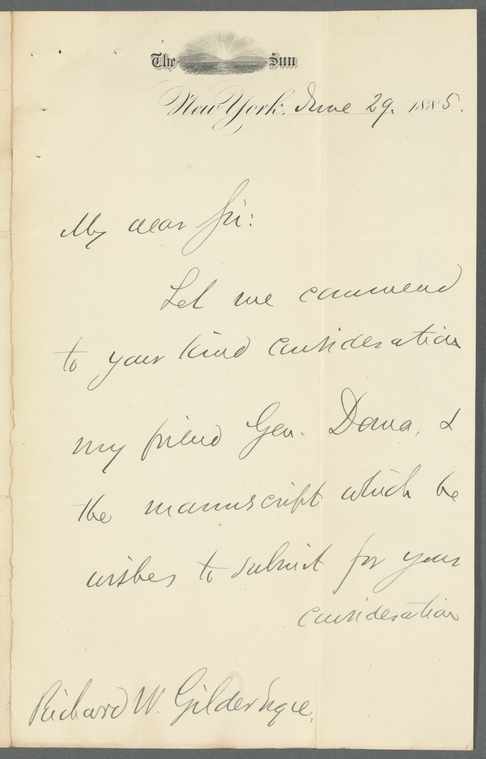 The Sun
New York, June 29. 1885.
My dear Sir:
Let me commend
to your kind consideration
my friend Gen. Dana, &
the manuscript which he
wishes to submit for your
consideration
Richard W. Gilder Esqre.